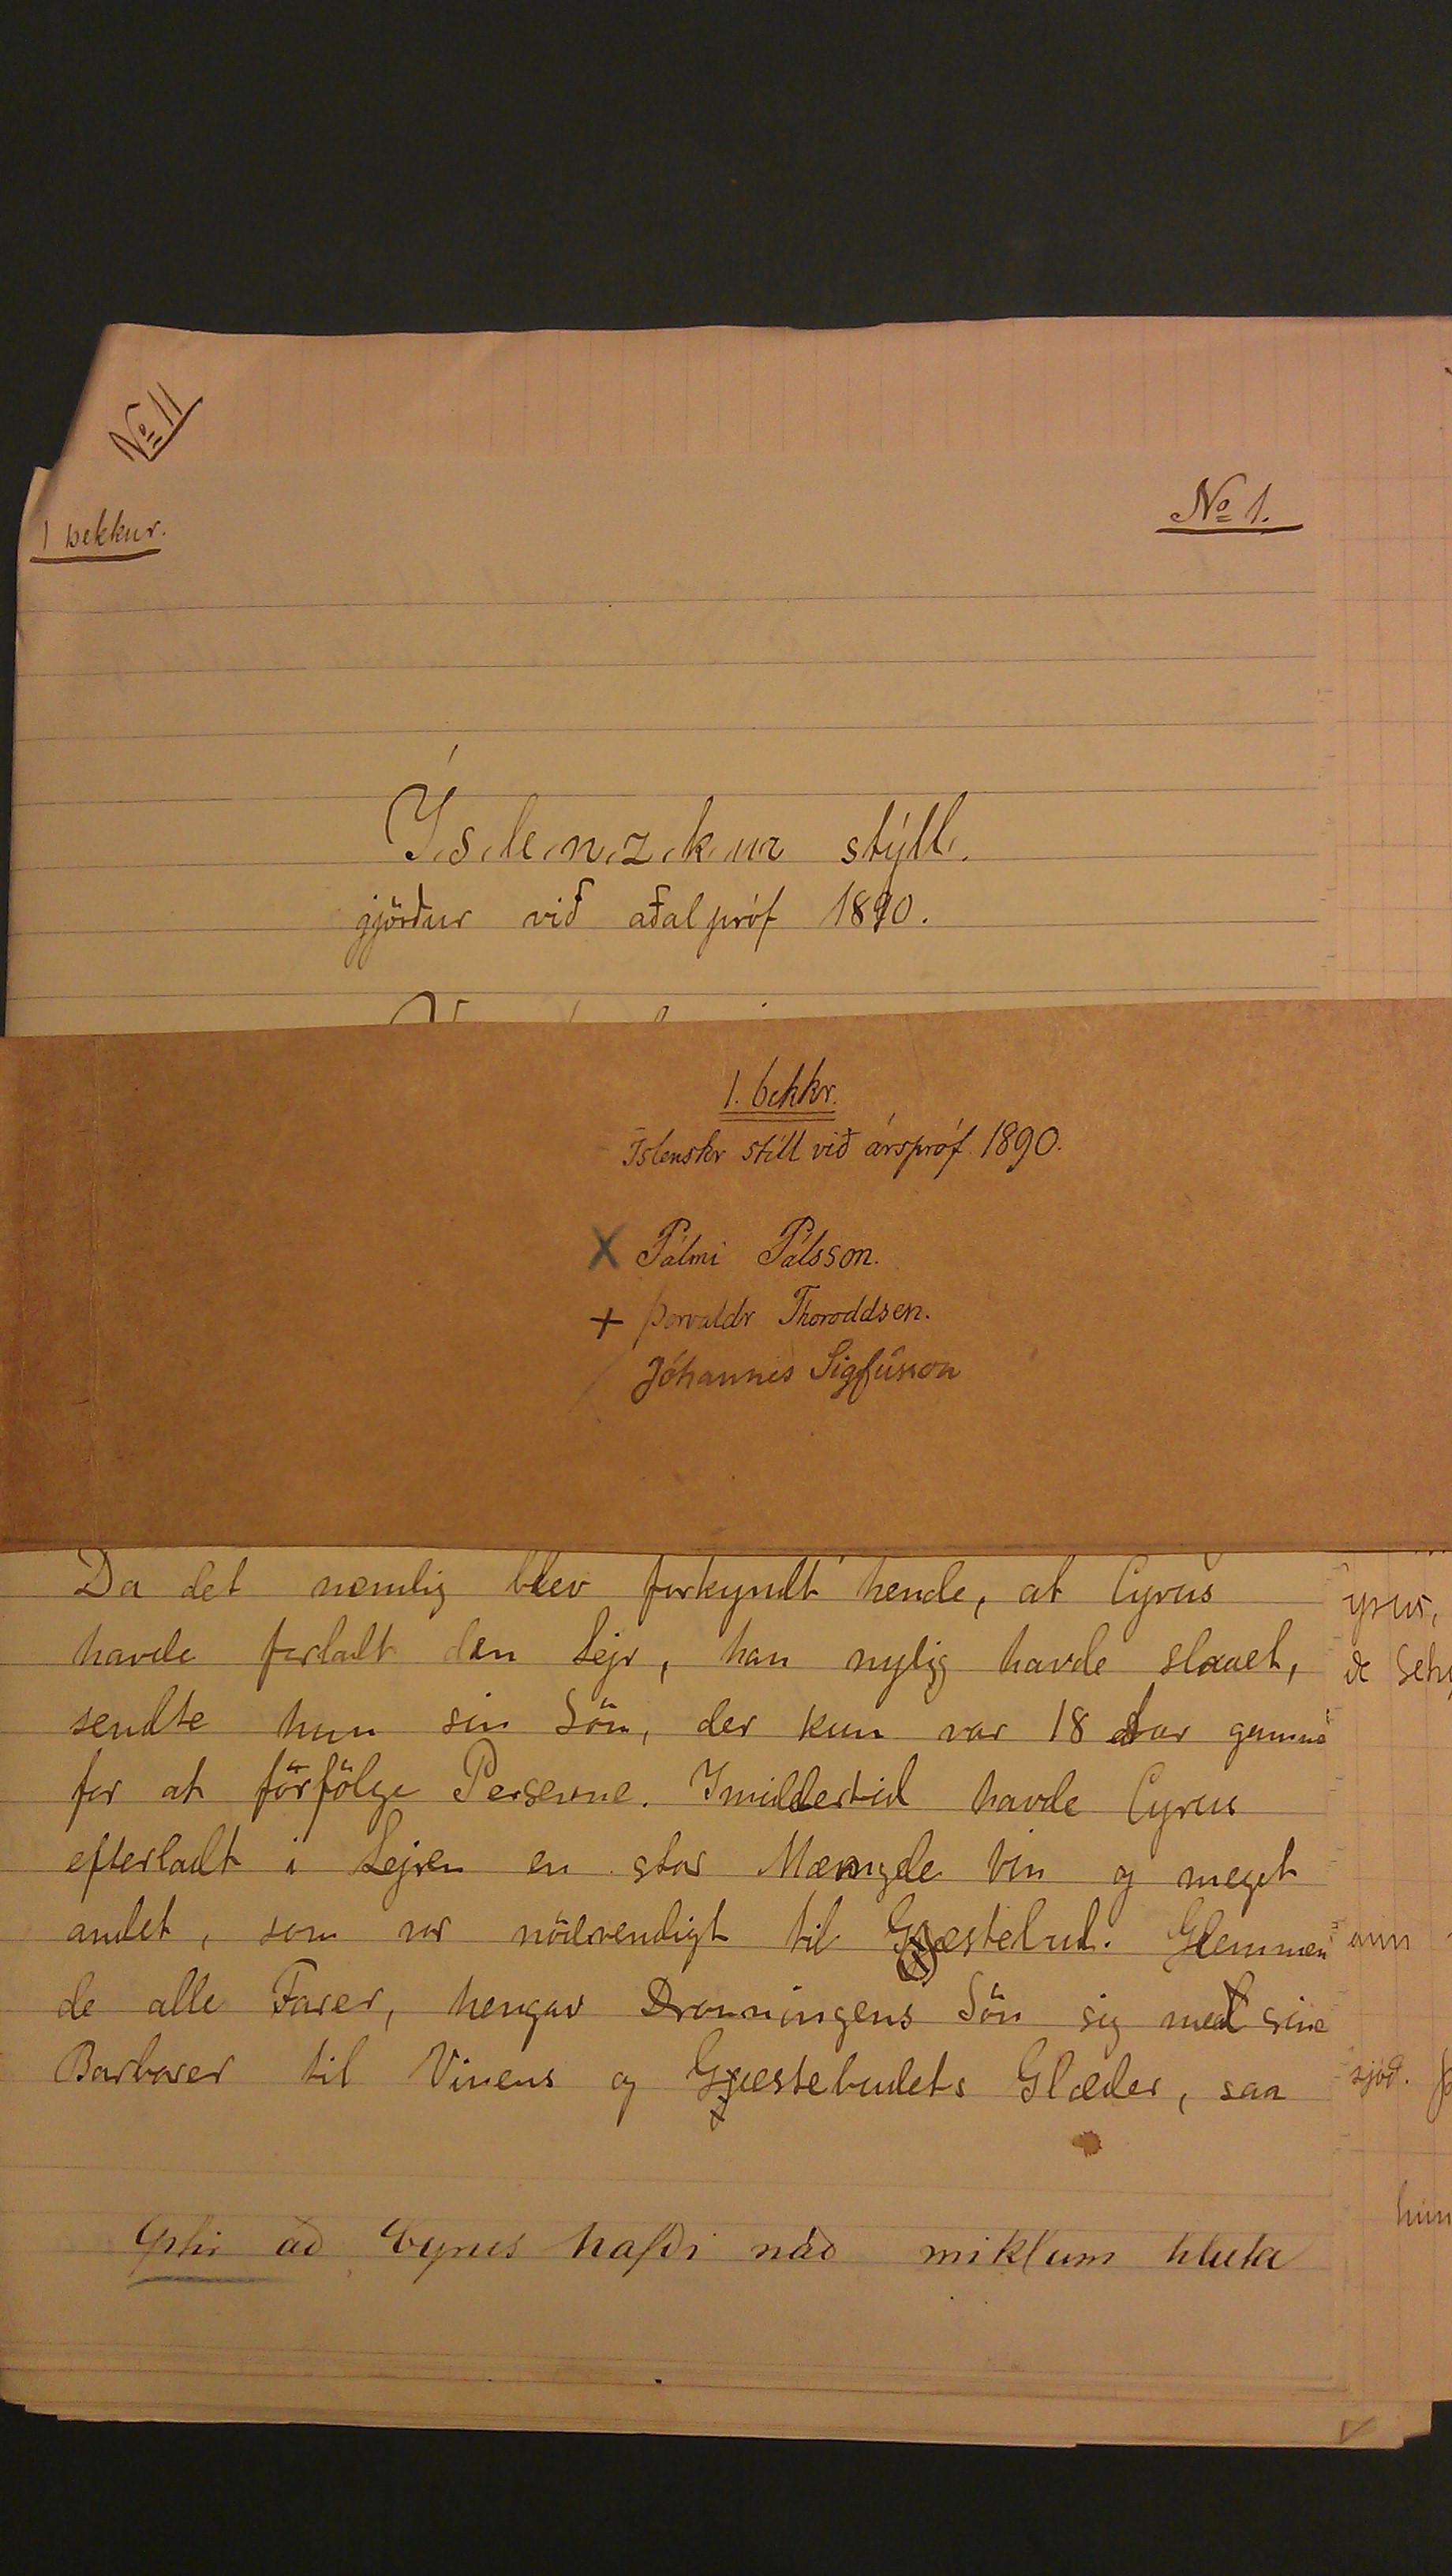 No 11
No 1.
1 bekkur.
Íslenzkur stýll.
gjörður við aðalpróf 1890.
1. bekkr.
Íslenskr stíll við árspróf 1890.
X Pálmi Pálsson.
+ Þorvaldr Thoroddsen.
Jóhannes Sigfússon
Da det nemlig blev forkyndt hende, at Cyrus
havde forladt den Lejr, han nylig havde slaaet,
sendte hun sin Sön, der kun var 18 Aar gammel
for at förfölge Perserne. Imidlertid havde Cyrus
efterladt i Lejren en stor Mængde Vin og meget
andet, som var nödvendigt til Gjæstebud. Glemmen
de alle Farer, hengav Dronningens Sön sig med sine
Barbarer til Vinens og Gjæstebudets Glæder, saa
Eptir að Cyrus hafði náð miklum hluta
yrus,
ann
sjóð.
hún